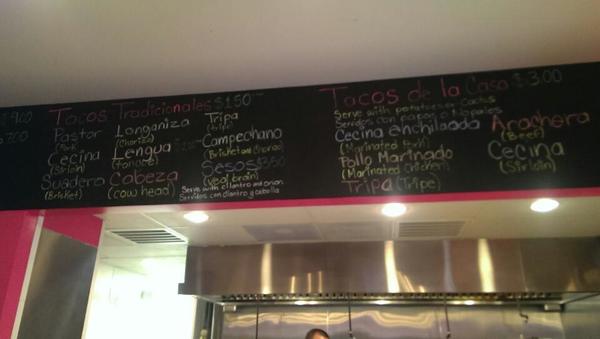 Tacos Tradicionales $1.50
Pastor
(Pork)
Cecina
(Sirloin)
Suadero
(Brisket)
Longaniza
(Chorizo)
Lengua
(Tongue)
Cabeza
(cow head)
Tripa
(tripe)
Campechano
(Brisket and Chorizo)
Sesos $3.50
(veal brain)
Serve with cilantro and onion
Servidos con cilantro y cebolla
Tacos de la Casa $3.00
Serve with potatoes or Cactus
Servidos con papas o Nopales
Cecina enchilada
(Marinated Pork)
Pollo Marinado
(Marinated Chicken)
Tripa (Tripe)
Arachera
(Beef)
Cecina
(Sirloin)